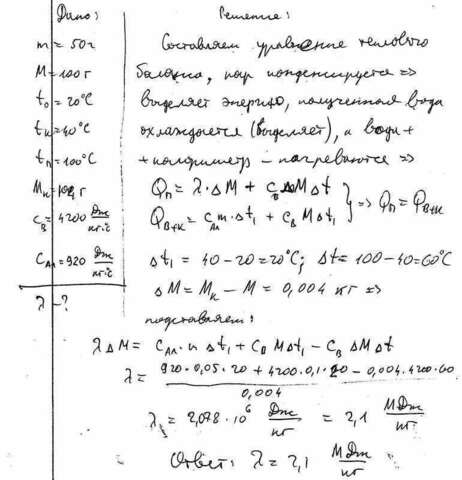 Дано:
m = 50 г
M = 100 г
t₀ = 20°C
tк = 40°C
tп = 100°C
Mк = 104 г
cв = 4200 Дж/кг·°C
cАл = 920 Дж/кг·°C
λ - ?
Решение:
Составляем уравнение теплового
баланса, пар конденсируется =>
выделяет энергию, полученная вода
охлаждается (выделяет), а вода +
+ калориметр - нагреваются =>
Qп = λ·ΔM + cв ΔM Δt
Qв+к = cАл m·Δt₁ + cв M Δt₁ } => Qп = Qв+к
Δt₁ = 40 - 20 = 20°C; Δt = 100 - 40 = 60°C
ΔM = Mк - M = 0,004 кг =>
подставляем:
λ ΔM = cАл·m Δt₁ + cв M Δt₁ - cв ΔM Δt
λ = (920·0,05·20 + 4200·0,1·20 - 0,004·4200·60) / 0,004
λ = 2,078·10⁶ Дж/кг = 2,1 МДж/кг
Ответ: λ = 2,1 МДж/кг